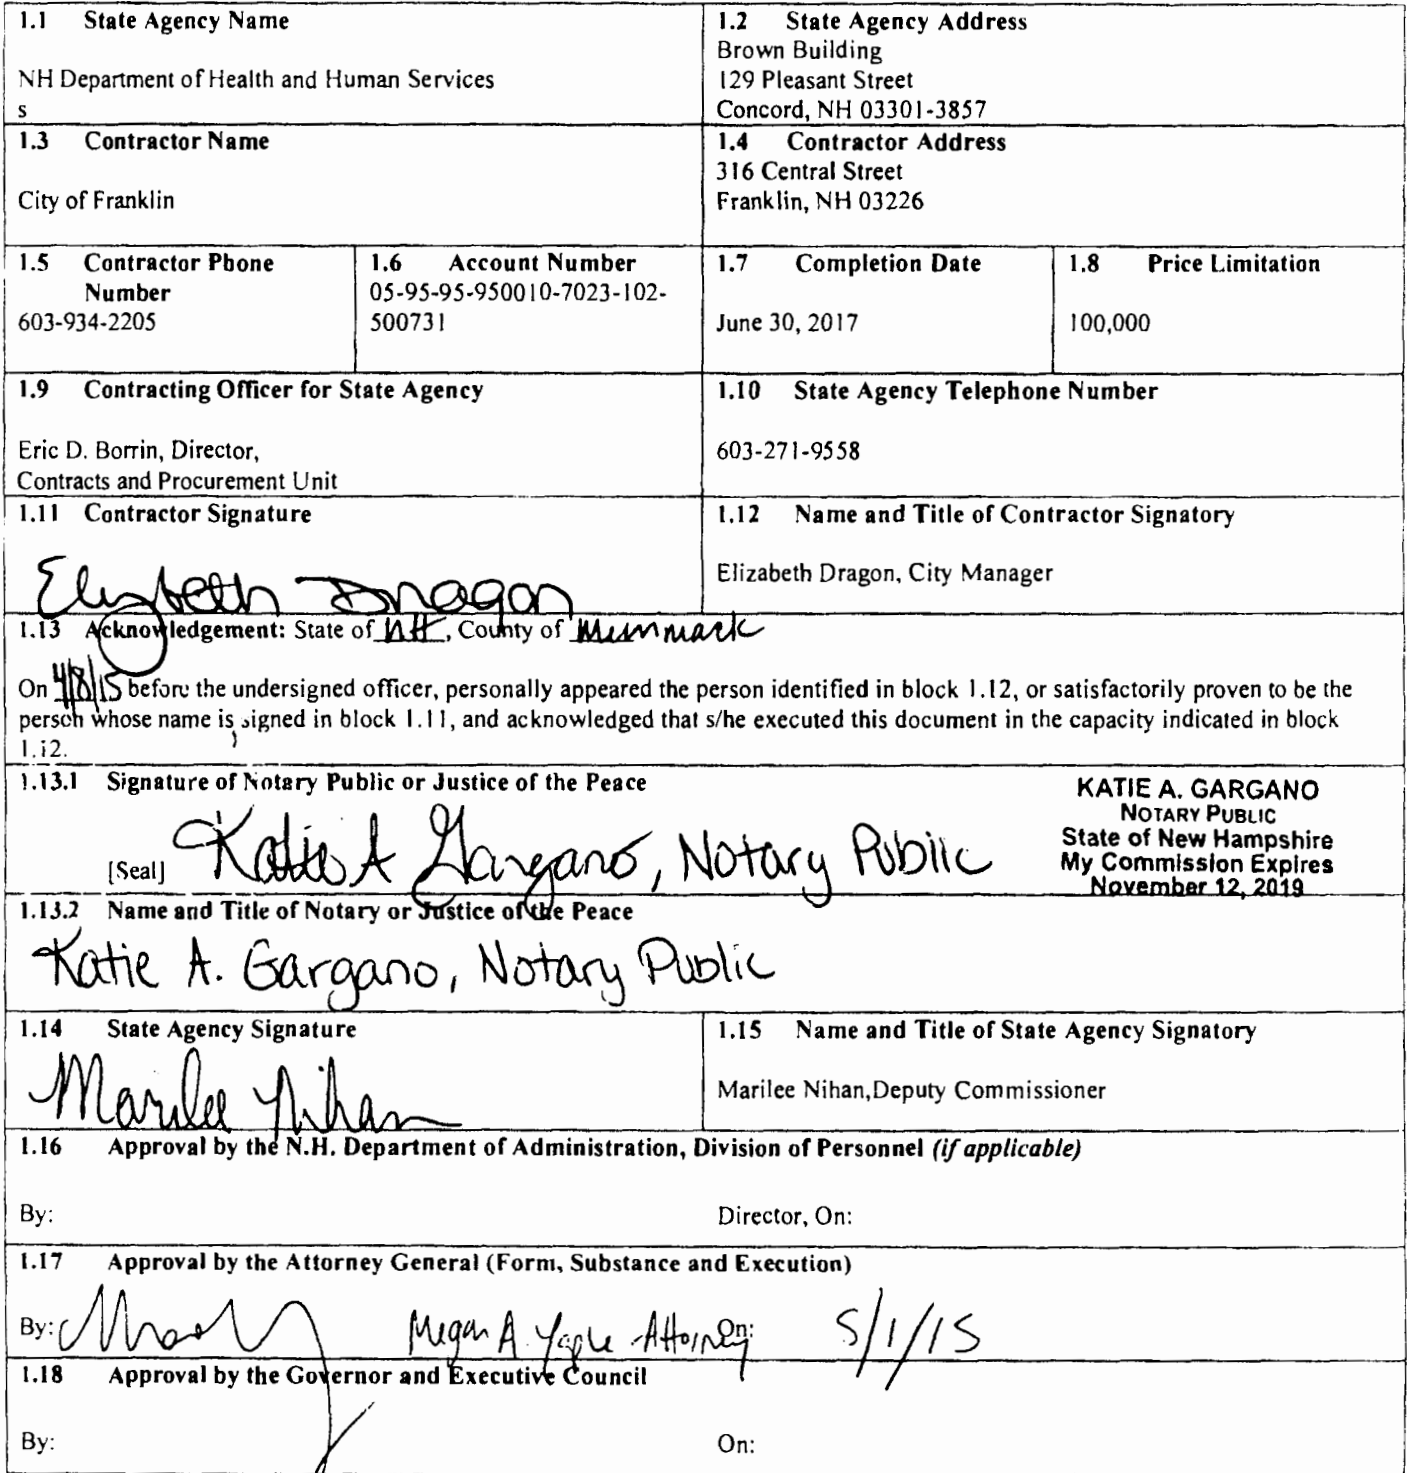 1.1 State Agency Name
NH Department of Health and Human Services
s
1.2 State Agency Address
Brown Building
129 Pleasant Street
Concord, NH 03301-3857
1.3 Contractor Name
City of Franklin
1.4 Contractor Address
316 Central Street
Franklin, NH 03226
1.5 Contractor Phone
Number
603-934-2205
1.6 Account Number
05-95-95-950010-7023-102-
500731
1.7 Completion Date
June 30, 2017
1.8 Price Limitation
100,000
1.9 Contracting Officer for State Agency
Eric D. Borrin, Director,
Contracts and Procurement Unit
1.10 State Agency Telephone Number
603-271-9558
1.11 Contractor Signature
Elizabeth Dragon
1.12 Name and Title of Contractor Signatory
Elizabeth Dragon, City Manager
1.13 Acknowledgement: State of NH, County of Merrimack
On 4/8/15 before the undersigned officer, personally appeared the person identified in block 1.12, or satisfactorily proven to be the
person whose name is signed in block 1.11, and acknowledged that s/he executed this document in the capacity indicated in block
1.12.
1.13.1 Signature of Notary Public or Justice of the Peace
[Seal] Katie A Gargano, Notary Public
KATIE A. GARGANO
NOTARY PUBLIC
State of New Hampshire
My Commission Expires
November 12, 2019
1.13.2 Name and Title of Notary or Justice of the Peace
Katie A. Gargano, Notary Public
1.14 State Agency Signature
Marilee Nihan
1.15 Name and Title of State Agency Signatory
Marilee Nihan,Deputy Commissioner
1.16 Approval by the N.H. Department of Administration, Division of Personnel (if applicable)
By: Director, On:
1.17 Approval by the Attorney General (Form, Substance and Execution)
By: Megan A. Yaple - Attorney On: 5/1/15
1.18 Approval by the Governor and Executive Council
By: On: